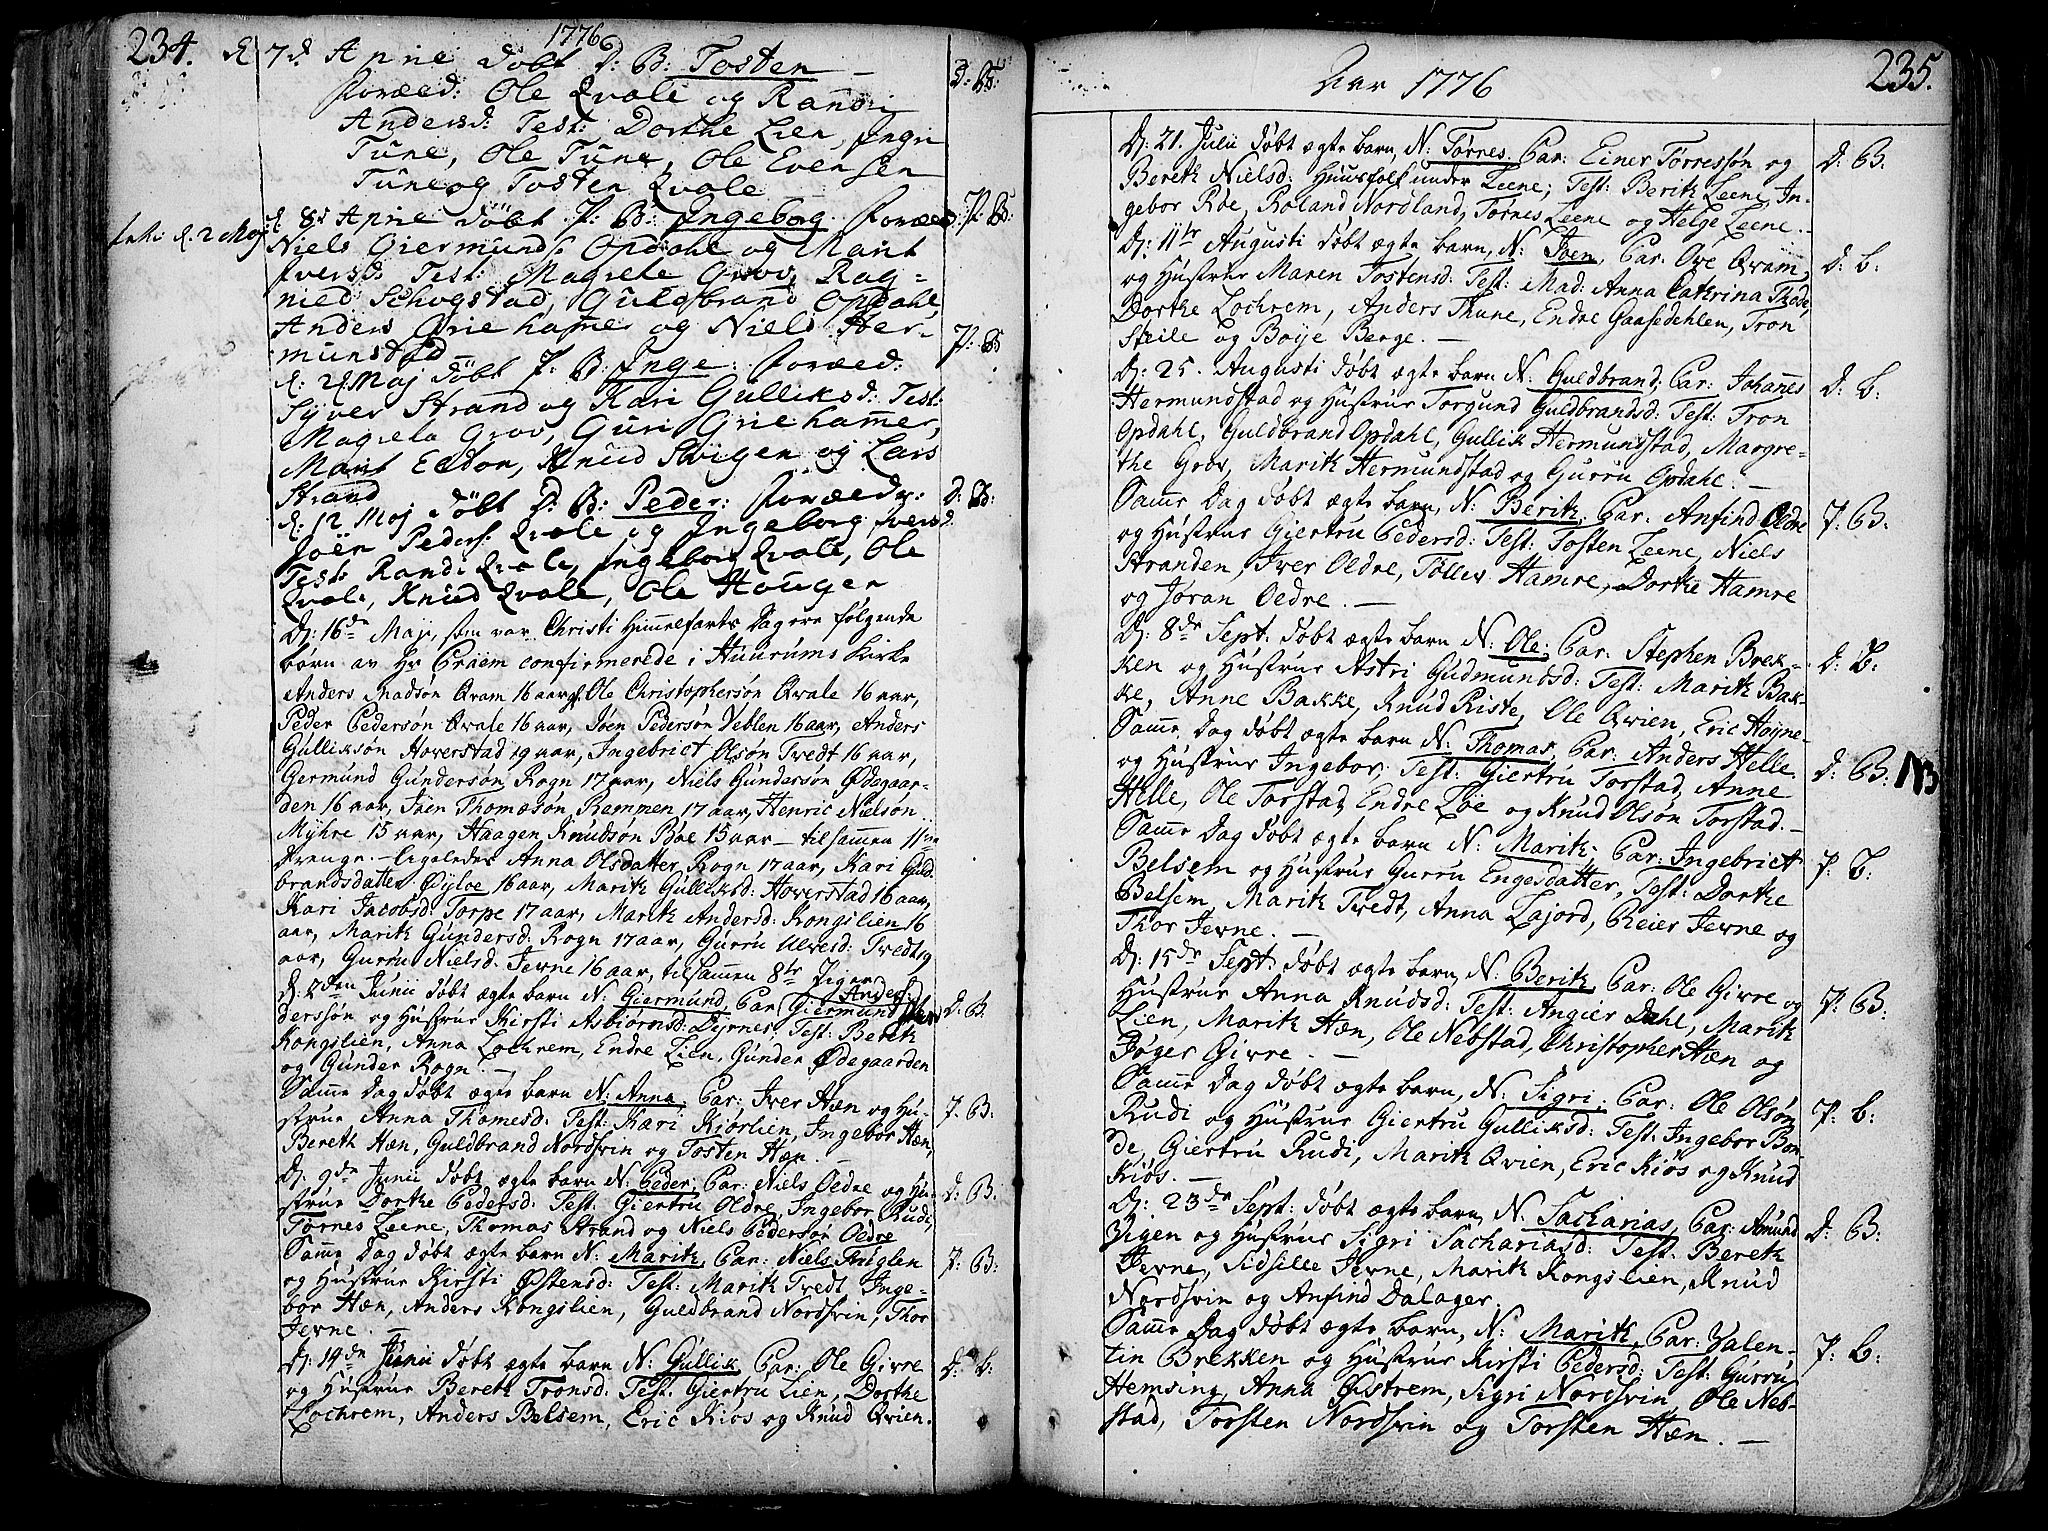 234.
1776
d. 7d. Aprie döbt D. B: Tosten —
Foræld: Ole Qvale og Randi
Andersd: Test: Dorthe Lien, Ingri
Tune, Ole Tune, Ole Evensen
Tune og Tosten Qvale
D: B:
d. 8d Aprie döbt P: B: Ingeborg. Foræld:
P: B:
Intr: d. 2 Maj
Niels Giermunds: Opdahl og Marit
Iversd: Test: Magrete Grov, Rag-
nild Schogstad, Gulgbrand Opdahl,
Anders Griehamer og Niels Her-
munstad —
P: B
d. 2 Maj döbt P. B. Inge: Foræld:
Syver Strand og Kari Gulliksd: Test:
Magreta Grov, Guri Griehamer,
Marit Eldon, Knud Svigen og Lars
Strand
D: B:
d: 12 Maj döbt D: B: Peder: Foræld:
Joën Peders: Qvale og Ingeborg Ivers
d.
Test: Randi Qvale, Ingeborg Qvale, Ole
Qvale, Knud Qvale, Ole Hauger
D: 16de Maji, som var Christi Himmelfarts Dag ere følgende
børn av Hr Cræem confirmerede i Huurums Kirke
Anders Madsøn Qvam 16 aar, Ole Christophersøn Qvale 16 aar,
Peder Pedersøn Qvale 16 aar, Joen Pedersøn Veblen 16 aar, Anders
Gulliksøn Hoverstad 19 aar, Ingebrict Olsøn Tvedt 16 aar,
Germund Gundersøn Rogn 17 aar, Niels Gundersøn Ødegaar-
den 16 aar, Joen Thomæsøn Rampen 17 aar, Henric Nielsøn
Myhre 15 aar, Haagen Knudsøn Bøe 15 aar — tilsammen 11ve
Drenge. — Ligeledes Anna Olsdatter Rogn 17 aar, Kari Guld-
brandsdatter Øyloe 16 aar, Marith Gulliksd: Hoverstad 16 aar,
Kari Jacobsd: Torpe 17 aar, Marith Andersd: Kongslien 16
aar, Marith Gundersd: Rogn 17 aar, Gurru Ulvesd: Tvedt 19
aar, Gurru Nielsd: Jerne 16 aar, tilsammen 8te Piger
D: 2den Junii døbt ægte barn N: Giermund Par: Giermund Anders:
derssøn og Hustrue Kirsti Asbiørnsd: Dyrnes Test: Bereth
D: B:
Kongslien, Anna Lochrem, Endre Lien, Gunder Ødegaarden
og Gunder Rogn. —
Samme Dag døbt ægte barn N: Anna, Par: Iver Hæn og Hu-
strue Anna Thomesd: Test: Kari Kiørlien, Ingebor Hæn,
P. B:
Bereth Hæn, Guldbrand Nordsvin og Tosten Hæn.
D: 9de Junii døbt ægte barn N: Peder, Par: Niels Oedre og Hu-
strue Dorthe Pedersd: Test: Giertru Oldre, Ingebor Rudi,
D: B:
Tørnes Leene, Thomas Strand og Niels Pedersøn Oedre
Samme Dag døbt ægte barn N: Marith, Par: Niels Trøglen
og Hustrue Kirsti Østensd: Test: Marith Tvedt Inge-
P: B:
bor Hæn, Anders Kongslien, Guldbrand Nordsvin, Thor
Jerne. —
D: 14de Junii døbt ægte barn N: Gullik, Par: Ole Givre
og Hustrue Bereth Tronsd: Test: Giertru Lien, Dorthe
D: b:
Lochrem, Anders Belsem, Eric Kiøs og Knud Qvien.
Aar 1776
235.
D: 21. Julii døbt ægte barn, N: Tørres, Par: Einer Tørressøn og
D: B.
Bereth Nielsd: Huusfolk under Leene; Test: Berith Leene, In-
gebor Røe, Roland Nordland, Tørnes Leene og Helge Leene. —
D: 11te Augusti døbt ægte barn, N: Joen, Par: Ove Qvam,
D: b:
og Hustrue Maren Tostensd: Test: Mad: Anna Cathrina Thode,
Dorthe Lochrem, Anders Thune, Endre Gaasedehlen, Tron
Steile og Boye Berge. —
D: 25. Augusti døbt ægte barn N: Guldbrand, Par: Johannes
D: b.
Hermundstad og Hustrue Torgund Guldbrandsd: Test: Tron
Opdahl, Guldbrand Opdahl, Gullik Hermundstad, Margre-
the Grov, Marith Hermundstad og Gurru Opdahl. —
Samme Dag døbt ægte barn, N: Berith, Par: Anfind Oldre
P: B:
og Hustrue Giertru Pedersd: Test: Tosten Leene, Niels
Stranden, Iver Oldre, Tollev Hamre, Dorthe Hamre
og Jøran Oedre. —
D: 8de Sept: døbt ægte barn N: Ole, Par: Stephen Brek-
D: b.
ken og Hustrue Astri Gudmundsd: Test: Marith Bak-
ke, Anne Bakke, Knud Riste, Ole Qvien, Eric Høyne-
Samme Dag døbt ægte barn N: Thomas, Par: Anders Helle
D: B: NB
og Hustrue Ingebor, Test: Giertru Torstad, Anne
Helle, Ole Torstad, Endre Loe og Knud Olsøn Torstad. —
Samme Dag døbt ægte barn N: Marith, Par: Ingebrict
P: b.
Belsem og Hustrue Gurru Engesdatter, Test: Dorthe
Belsem, Marith Tvedt, Anna Lajord, Reier Jerne og
Thor Jerne. —
D: 15de Sept: døbt ægte barn, N: Berith, Par: Ole Givre og
P: B:
Hustrue Anna Knudsd: Test: Angier Dahl, Marith
Lien, Marith Hæn, Ole Nebstad, Christopher Hæn og
Bøger Givre. —
Samme Dag døbt ægte barn, N: Sigri, Par: Ole Olsøn
P: b:
Rudi og Hustrue Giertru Gulliksd: Test: Ingebor Bon-
de, Giertru Rudi, Marith Qvien, Eric Kiøs og Knud
Kiøs. —
D: 23de Sept: døbt ægte barn, N: Sacharias, Par: Amund
D: B:
Vigen og Hustrue Sigri Sachariasd: Test: Bereth
Jerne, Sidselle Jerne, Marith Kongslien, Knud
Nordsvin og Anfind Dalager.
Samme Dag døbt ægte barn, N: Marith, Par: Valen-
P: b:
tin Brekken og Hustrue Kirsti Pedersd: Test: Gurru
Hemsing, Anna Østrem, Sigri Nordsvin, Ole Neb-
stad, Torsten Nordsvin og Torsten Hæn. —